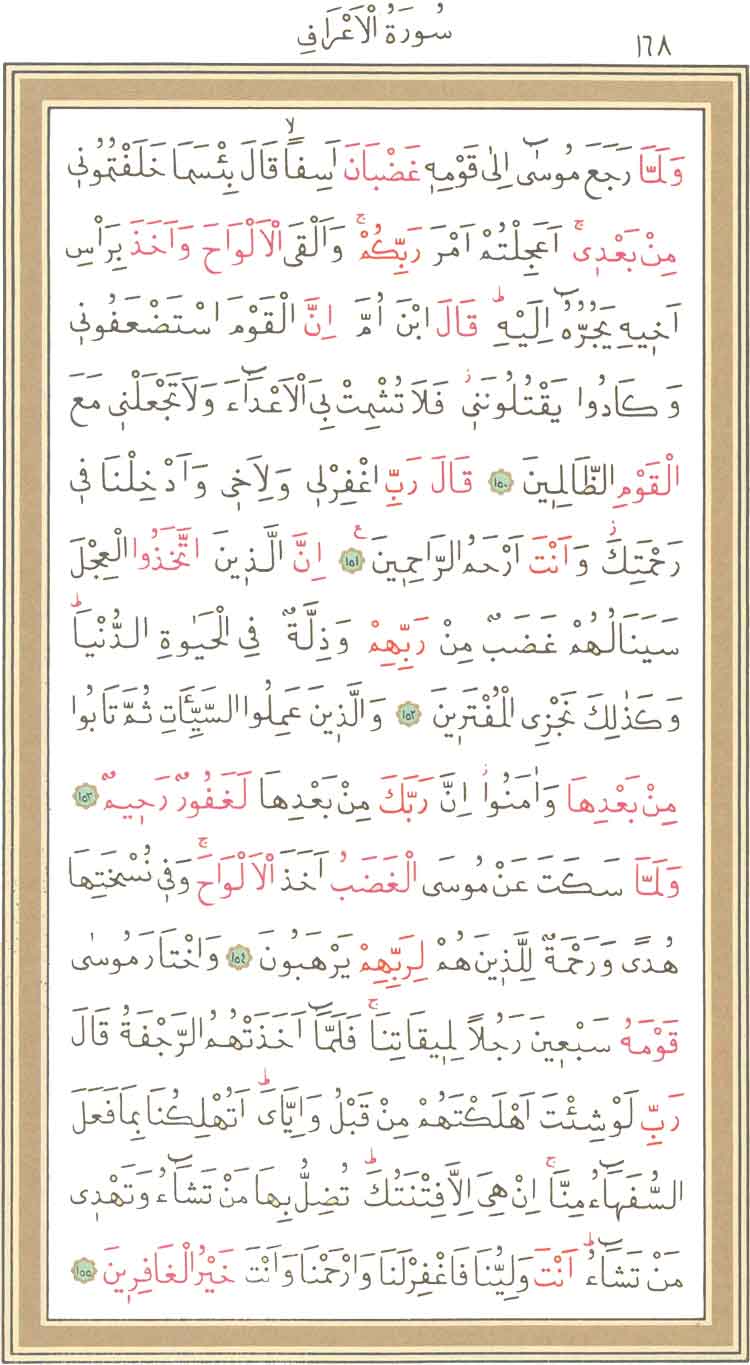 ١٦٨
سُورَةُ الْاَعْرَافِ
وَلَمَّا رَجَعَ مُوسٰٓى اِلٰى قَوْمِه۪ غَضْبَانَ اَسِفاًۙ قَالَ بِئْسَمَا خَلَفْتُمُون۪ي
مِنْ بَعْد۪يۚ اَعَجِلْتُمْ اَمْرَ رَبِّكُمْۚ وَاَلْقَى الْاَلْوَاحَ وَاَخَذَ بِرَأْسِ
اَخ۪يهِ يَجُرُّهُٓ اِلَيْهِۜ قَالَ ابْنَ اُمَّ اِنَّ الْقَوْمَ اسْتَضْعَفُون۪ي
وَكَادُوا يَقْتُلُونَن۪يۘ فَلَا تُشْمِتْ بِيَ الْاَعْدَٓاءَ وَلَا تَجْعَلْن۪ي مَعَ
الْقَوْمِ الظَّالِم۪ينَ ١٥٠ قَالَ رَبِّ اغْفِرْل۪ي وَلِاَخ۪ي وَاَدْخِلْنَا ف۪ي
رَحْمَتِكَۘ وَاَنْتَ اَرْحَمُ الرَّاحِم۪ينَ ع ١٥١ اِنَّ الَّذ۪ينَ اتَّخَذُوا الْعِجْلَ
سَيَنَالُهُمْ غَضَبٌ مِنْ رَبِّهِمْ وَذِلَّةٌ فِي الْحَيٰوةِ الدُّنْيَاۜ
وَكَذٰلِكَ نَجْزِي الْمُفْتَر۪ينَ ١٥٢ وَالَّذ۪ينَ عَمِلُوا السَّيِّـَٔاتِ ثُمَّ تَابُوا
مِنْ بَعْدِهَا وَاٰمَنُواۘ اِنَّ رَبَّكَ مِنْ بَعْدِهَا لَغَفُورٌ رَح۪يمٌ ١٥٣
وَلَمَّا سَكَتَ عَنْ مُوسَى الْغَضَبُ اَخَذَ الْاَلْوَاحَۚ وَف۪ي نُسْخَتِهَا
هُدًى وَرَحْمَةٌ لِلَّذ۪ينَ هُمْ لِرَبِّهِمْ يَرْهَبُونَ ١٥٤ وَاخْتَارَ مُوسٰى
قَوْمَهُ سَبْع۪ينَ رَجُلاً لِم۪يقَاتِنَاۚ فَلَمَّٓا اَخَذَتْهُمُ الرَّجْفَةُ قَالَ
رَبِّ لَوْ شِئْتَ اَهْلَكْتَهُمْ مِنْ قَبْلُ وَاِيَّايَۜ اَتُهْلِكُنَا بِمَا فَعَلَ
السُّفَهَٓاءُ مِنَّاۚ اِنْ هِيَ اِلَّا فِتْنَتُكَۜ تُضِلُّ بِهَا مَنْ تَشَٓاءُ وَتَهْد۪ي
مَنْ تَشَٓاءُۜ اَنْتَ وَلِيُّنَا فَاغْفِرْ لَنَا وَارْحَمْنَا وَاَنْتَ خَيْرُ الْغَافِر۪ينَ ١٥٥